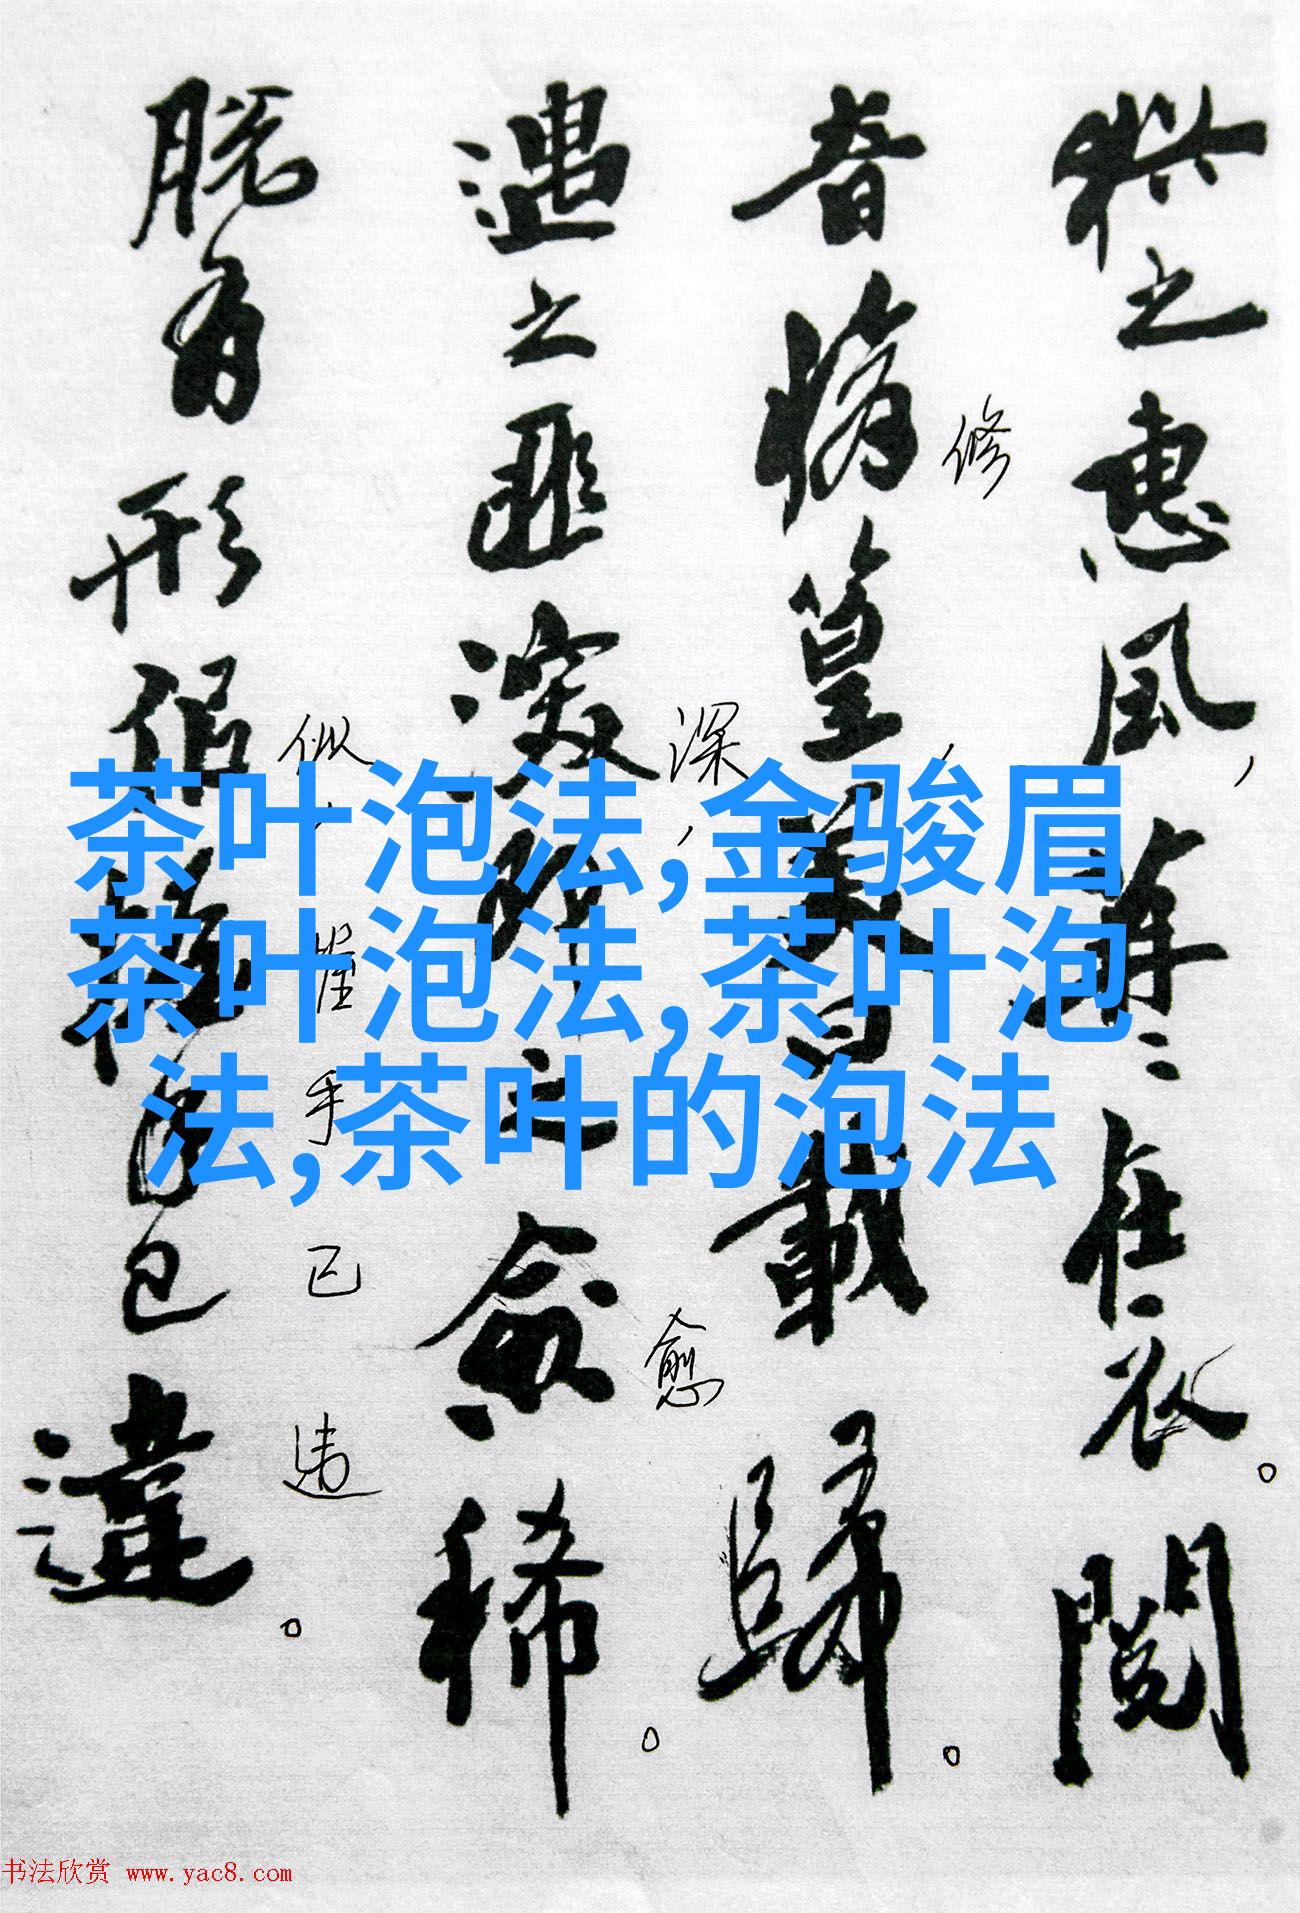 猶之惠風，在衣。閱
音修篁，美曰載歸。
修
遇之匪深，即之愈稀。
深
愈
脱有形似，握手已違。
似 握 手 已 违
茶叶泡法,金骏眉
茶叶泡法,茶叶泡
法,茶叶的泡法
书法欣赏 www.yac8.com